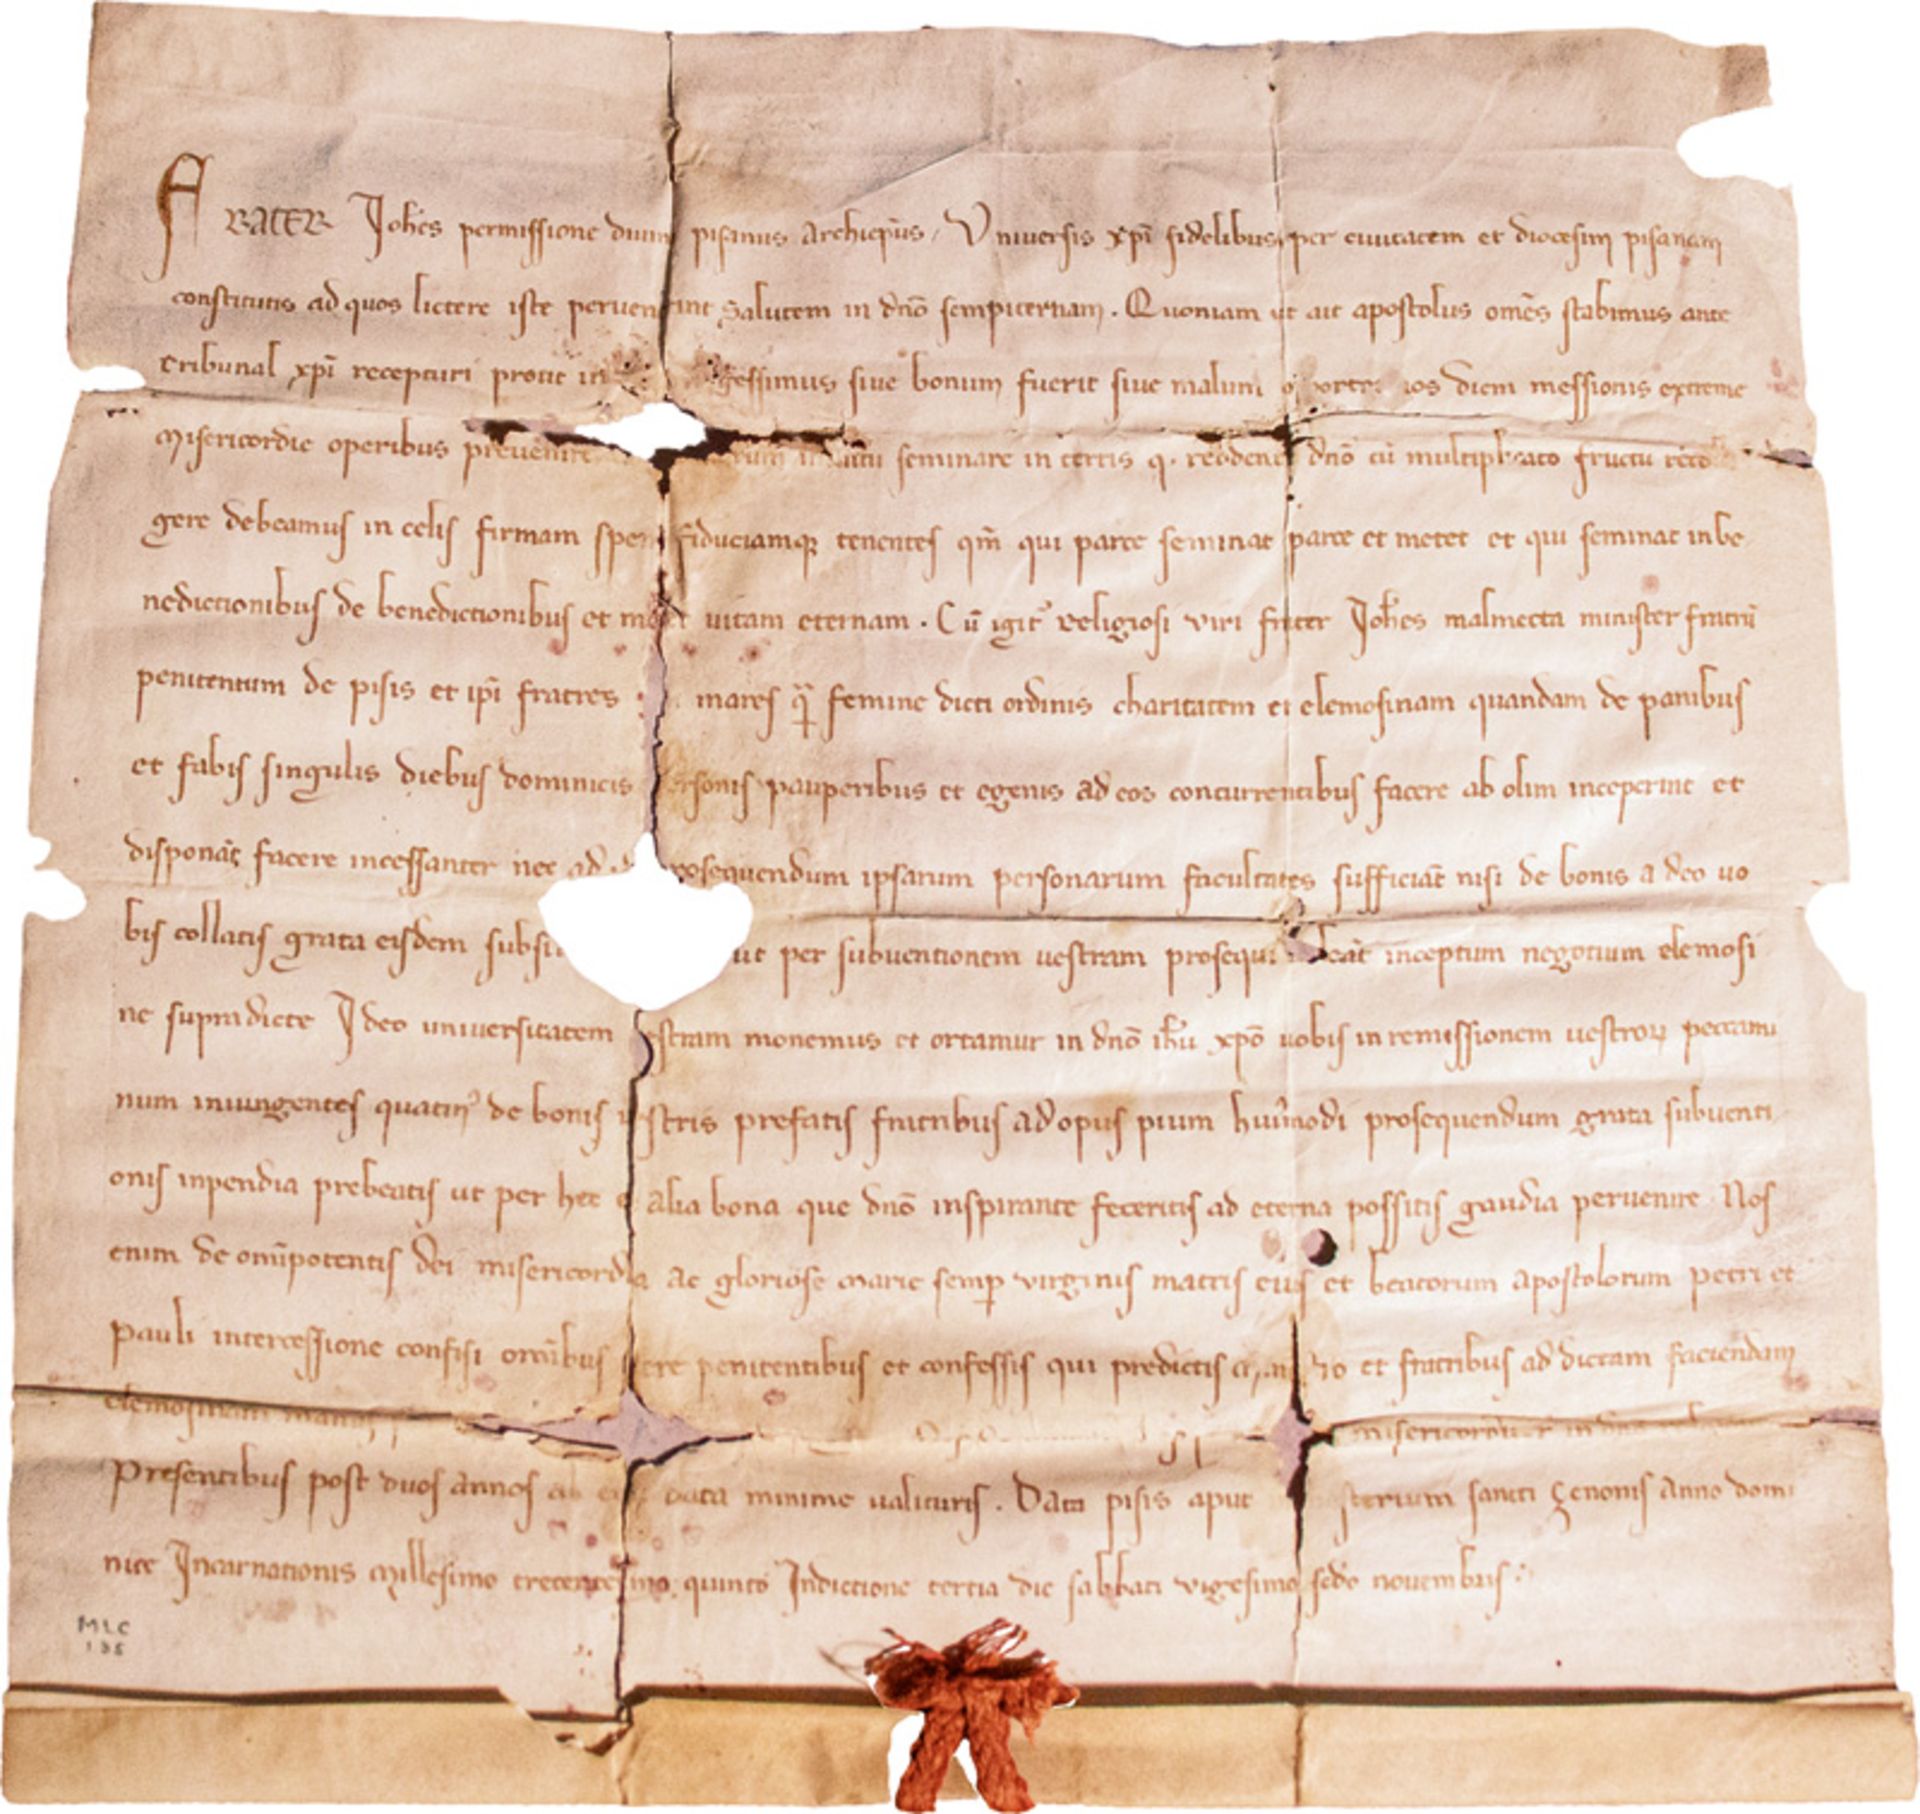 FRATER Joħes permissione diuina pisanus Archiepūs. Vniuersis xp̄i fidelibus per ciuitatem et diocesim pisanam
constitutis ad quos lictere iste peruenerint Salutem in dn̄o sempiternam. Quoniam ut ait apostolus om̄es stabimus ante
tribunal xp̄i recepturi prout in gessimus siue bonum fuerit siue malum nos diem messionis extreme
misericordie operibus preuenire seminare in terris q. dn̄o cū multiplicato fructu reco
gere debeamus in celis firmam spem fiduciamq; tenentes qm̄ qui parce seminat parce et metet et qui seminat in be
nedictionibus de benedictionibus et metet uitam eternam. Cū igit᷑ religiosi viri frater Joħes malmecta minister fratrū
penitentum de pisis et ip̄i fratres mares q̄ femine dicti ordinis charitatem et elemosinam quandam de panibus
et fabis singulis diebus dominicis personis pauperibus et egenis ad eos concurrentibus facere ab olim inceperint et
disponāt facere incessanter nec ad prosequendum ipsarum personarum facultates sufficiāt nisi de bonis a deo uo
bis collatis grata eisdem ut per subuentionem uestram prosequi inceptum negotium elemosi
ne supradicte Ideo uniuersitatem uestram monemus et ortamur in dn̄o iħu xp̄o uobis in remissionem uestroꝝ peccami
num iniungentes quatin᷒ de bonis uestris prefatis fratribus ad opus pium huīmodi prosequendum grata subuenti
onis inpendia prebeatis ut per hec et alia bona que dn̄o inspirante feceritis ad eterna possitis gaudia peruenire. Nos
enim de om̄ipotentis dei misericordia ac gloriose marie semp̱ virginis matris eius et beatorum apostolorum petri et
pauli intercessione confisi om̄ibus uere penitentibus et confessis qui predictis et fratribus ad dictam faciendam
elemosinam misericorditer in
Presentibus post duos annos data minime ualituris. Data pisis aput monasterium sancti çenonis Anno domi
nice Incarnationis Millesimo trecentesimo quinto Indictione tertia die sabbati vigesimo sēdo nouembris
MLC
135